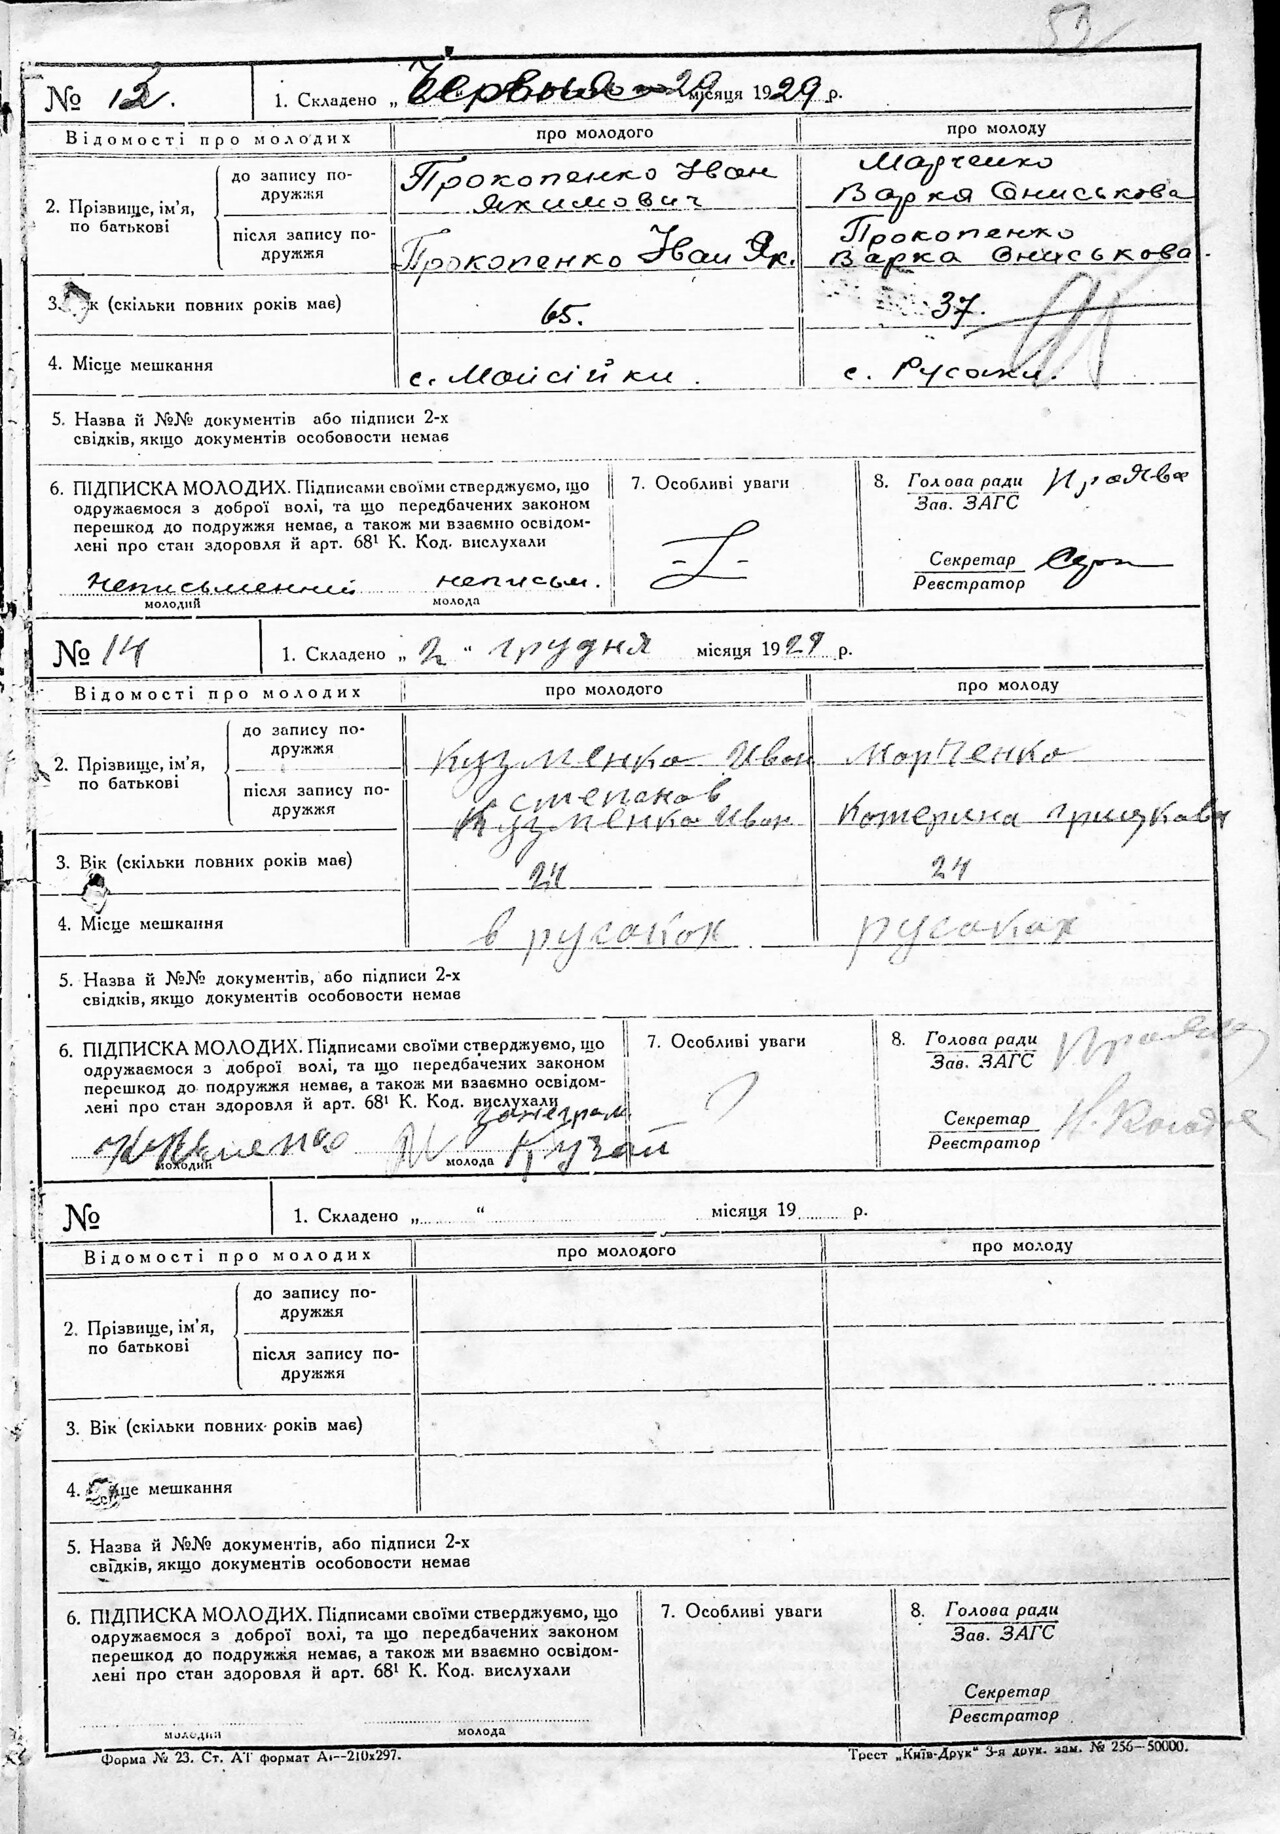 53
№ 12. 1. Складено „ Червня 29 місяця 1929 р.
Відомості про молодих про молодого про молоду
2. Прізвище, ім'я, по батькові
до запису подружжя Прокопенко Іван Якимович Марченко Варка Ониськова
після запису подружжя Прокопенко Іван Як. Прокопенко Варка Ониськова.
3. Вік (скільки повних років має) 65. 37.
4. Місце мешкання с. Мойсійки. с. Русаки.
5. Назва й №№ документів або підписи 2-х
свідків, якщо документів особовости немає
6. ПІДПИСКА МОЛОДИХ. Підписами своїми стверджуємо, що
одружаємося з доброї волі, та що передбачених законом
перешкод до подружжя немає, а також ми взаємно освідом-
лені про стан здоровля й арт. 68¹ К. Код. вислухали
неписьменний неписьм.
молодий молода
7. Особливі уваги
8. Голова ради
Зав. ЗАГС
Секретар
Реєстратор
№ 14 1. Складено „ 2 “ грудня місяця 1929 р.
Відомості про молодих про молодого про молоду
2. Прізвище, ім'я, по батькові
до запису подружжя Кузменко Иван Степанов Марченко
після запису подружжя Кузменко Иван Катерина Грицкова
3. Вік (скільки повних років має) 24 24
4. Місце мешкання в русаках русаках
5. Назва й №№ документів, або підписи 2-х
свідків, якщо документів особовости немає
6. ПІДПИСКА МОЛОДИХ. Підписами своїми стверджуємо, що
одружаємося з доброї волі, та що передбачених законом
перешкод до подружжя немає, а також ми взаємно освідом-
лені про стан здоровля й арт. 68¹ К. Код. вислухали
молодий молода
7. Особливі уваги
8. Голова ради
Зав. ЗАГС
Секретар
Реєстратор
№ 1. Складено „ “ місяця 19 р.
Відомості про молодих про молодого про молоду
2. Прізвище, ім'я, по батькові
до запису подружжя
після запису подружжя
3. Вік (скільки повних років має)
4. Місце мешкання
5. Назва й №№ документів, або підписи 2-х
свідків, якщо документів особовости немає
6. ПІДПИСКА МОЛОДИХ. Підписами своїми стверджуємо, що
одружаємося з доброї волі, та що передбачених законом
перешкод до подружжя немає, а також ми взаємно освідом-
лені про стан здоровля й арт. 68¹ К. Код. вислухали
молодий молода
7. Особливі уваги
8. Голова ради
Зав. ЗАГС
Секретар
Реєстратор
Форма № 23. Ст. АТ формат А₄—210х297. Трест „Київ-Друк“ 3-я друк. зам. № 256—50000.